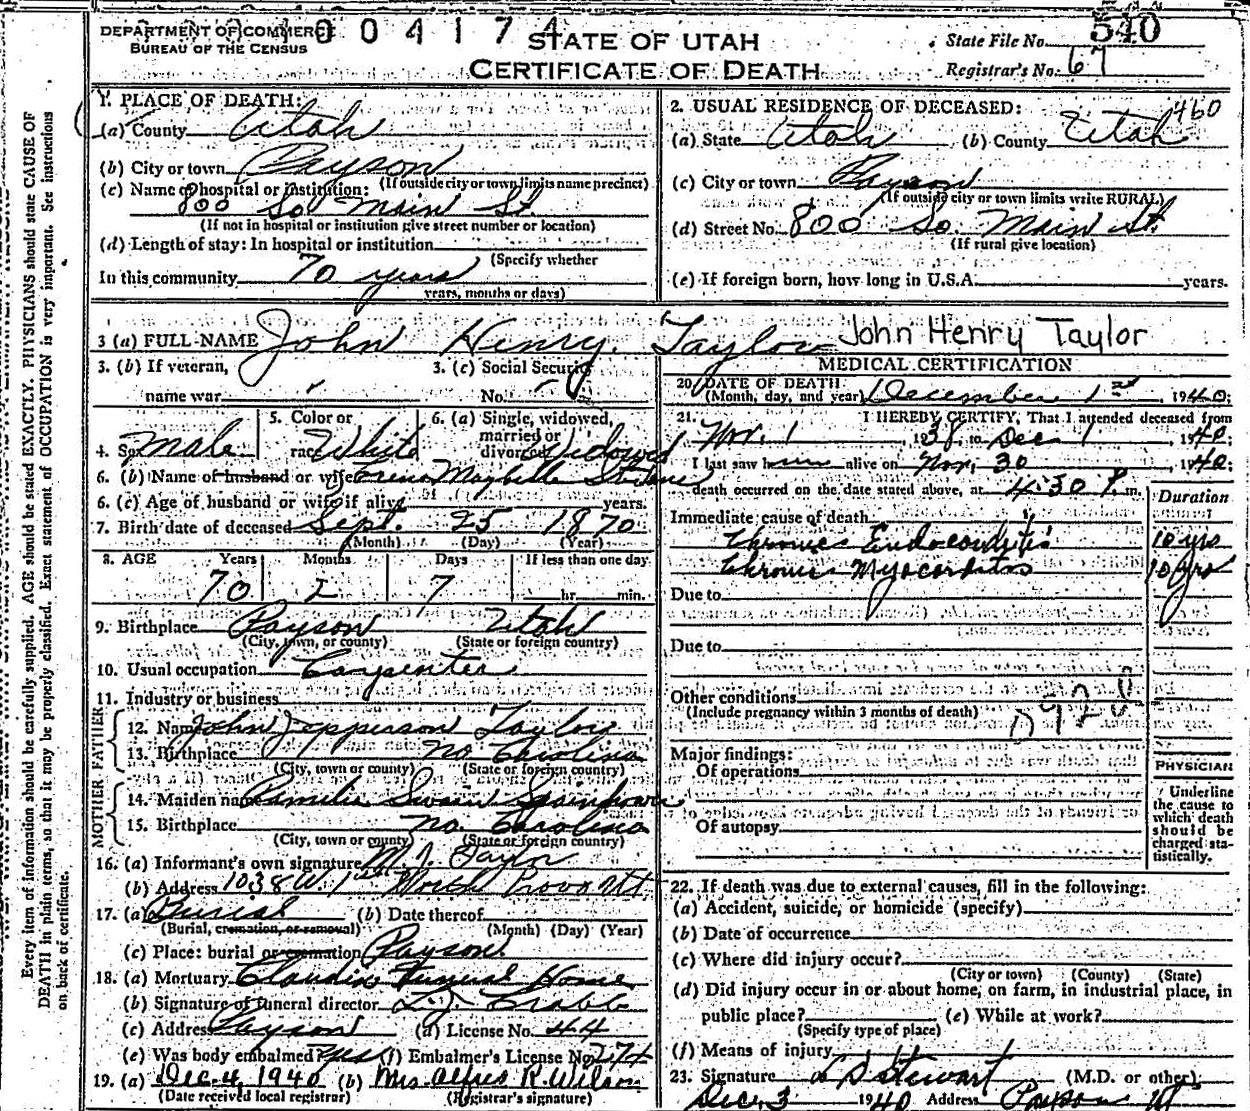 DEPARTMENT OF COMMERCE
BUREAU OF THE CENSUS
004174
STATE OF UTAH
CERTIFICATE OF DEATH
State File No. 540
Registrar's No. 67
Every item of information should be carefully supplied. AGE should be stated EXACTLY. PHYSICIANS should state CAUSE OF
DEATH in plain terms, so that it may be properly classified. Exact statement of OCCUPATION is very important. See instructions
on back of certificate.
1. PLACE OF DEATH:
(a) County Utah
(b) City or town Payson
(If outside city or town limits name precinct)
(c) Name of hospital or institution:
800 So Main St.
(If not in hospital or institution give street number or location)
(d) Length of stay: In hospital or institution
(Specify whether
In this community 70 years
years, months or days)
2. USUAL RESIDENCE OF DECEASED: 460
(a) State Utah (b) County Utah
(c) City or town Payson
(If outside city or town limits write RURAL)
(d) Street No. 800 So. Main St.
(If rural give location)
(e) If foreign born, how long in U.S.A. years.
3 (a) FULL NAME John Henry Taylor John Henry Taylor
3. (b) If veteran,
name war
3. (c) Social Security
No.
4. Sex male
5. Color or
race White
6. (a) Single, widowed,
married or
divorced Widowed
6. (b) Name of husband or wife Maybelle
6. (c) Age of husband or wife if alive years.
7. Birth date of deceased Sept. 25 1870
(Month) (Day) (Year)
8. AGE Years Months Days If less than one day
70 2 7 hr. min.
9. Birthplace Payson Utah
(City, town, or county) (State or foreign country)
10. Usual occupation Carpenter
11. Industry or business
FATHER
12. Name John Jepperson Taylor
13. Birthplace No. Carolina
(City, town or county) (State or foreign country)
MOTHER
14. Maiden name Swain
15. Birthplace No. Carolina
(City, town or county) (State or foreign country)
16. (a) Informant's own signature M. J. Taylor
(b) Address 1038 W. 1st North Provo Ut
17. (a) Burial (b) Date thereof
(Burial, cremation, or removal) (Month) (Day) (Year)
(c) Place: burial or cremation Payson
18. (a) Mortuary Claudin Funeral Home
(b) Signature of funeral director
(c) Address Payson (d) License No. 44
(e) Was body embalmed? Yes (f) Embalmer's License No. 274
19. (a) Dec. 4, 1940 (b) Mrs Alfred R. Wilson
(Date received local registrar) (Registrar's signature)
MEDICAL CERTIFICATION
20. DATE OF DEATH
(Month, day, and year) December 1st, 1940;
21. I HEREBY CERTIFY, That I attended deceased from
Nov. 1, 1938, to Dec 1, 1940;
I last saw him alive on Nov. 30, 1940;
death occurred on the date stated above, at 4:30 P. m.
Duration
Immediate cause of death
Chronic Endocarditis 10 yrs
Chronic Myocarditis 10 yrs
Due to
Due to
Other conditions
(Include pregnancy within 3 months of death)
Major findings:
Of operations
Of autopsy
PHYSICIAN
Underline
the cause to
which death
should be
charged sta-
tistically.
22. If death was due to external causes, fill in the following:
(a) Accident, suicide, or homicide (specify)
(b) Date of occurrence
(c) Where did injury occur?
(City or town) (County) (State)
(d) Did injury occur in or about home, on farm, in industrial place, in
public place? (e) While at work?
(Specify type of place)
(f) Means of injury
23. Signature L D Stewart (M.D. or other)
Dec. 3 1940 Address Payson Ut